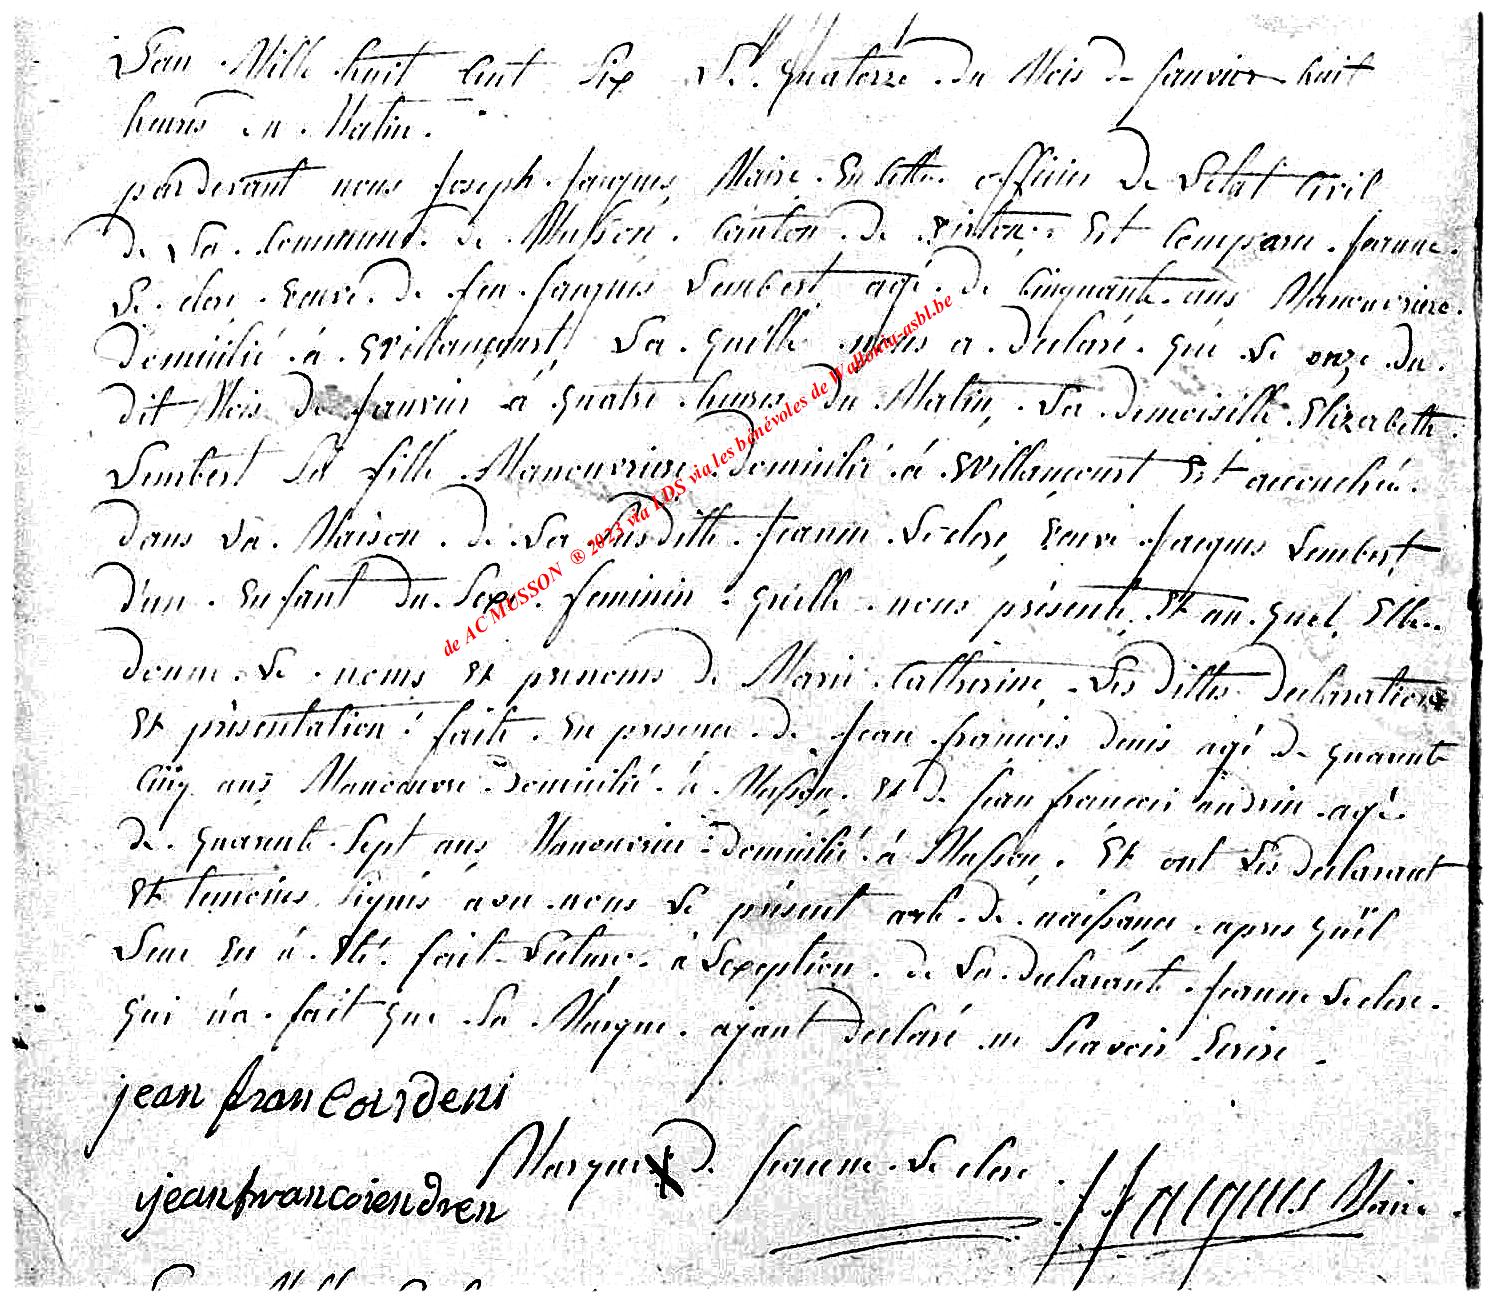 L'an Mille huit Cent Six Le quatorze du Mois de janvier huit
heures du Matin.
pardevant nous joseph jacques Maire En cette officier de L'état Civil
de La Commune de Musson Canton de Virton Est Comparu jeanne
Le clerc veuve de feu jacques Lembert agé de Cinquante ans Manouvriere
domicilié à Willancourt La quelle nous a declaré que Le onze du
dit Mois de janvier à quatre heures du Matin La demoiselle Elizabeth
Lembert Sa fille Manouvriere domicilié à Willancourt Est accouchée
dans La Maison de La Susditte jeanne Leclerc veuve jacques Lembert
d'un Enfant du Sexe feminin quelle nous présente Et au quel Elle
donne Le noms Et prenoms de Marie Catherine Les dittes declaration
Et présentation faite En presence de jean françois denis agé de quarante
Cinq ans Manouvrie domicilié à Musson Et de jean françois andrin agé
de quarante Sept ans Manouvrie domicilié à Musson, Et ont Les declarant
Et temoins Signés avec nous Le présent acte de naissance apres qu'il
Leur En à Eté fait Lecture à L'exeption de La declarante jeanne Leclerc
qui n'a fait que Sa Marque ajant declaré ne Scavoir Ecrire
jean francois deni
Marque X de jeanne Le clerc
jean francoiendren
JJacques Maire
de AC MUSSON ® 2023 via LDS via les bénévoles de Wallonia-asbl.be